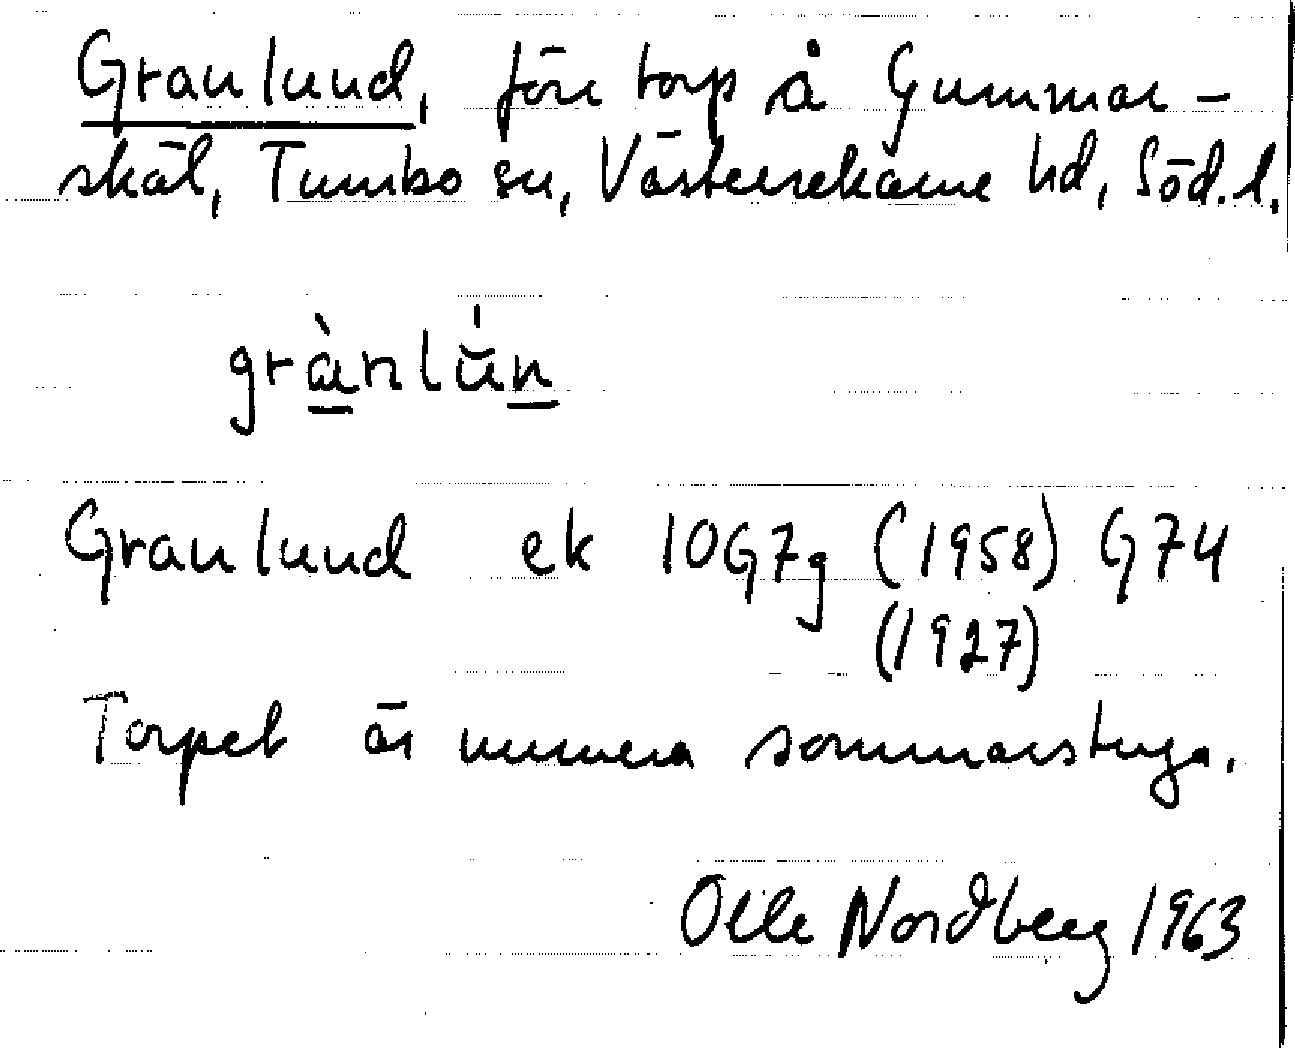 Granlund, förr torp å Gummar-
skäl, Tumbo sn, Västerrekarne hd, Söd.l.
grànlǔ́n
Granlund ek 10G7g (1958) G74
(1927)
Torpet är numera sommarstuga.
Olle Nordberg 1963